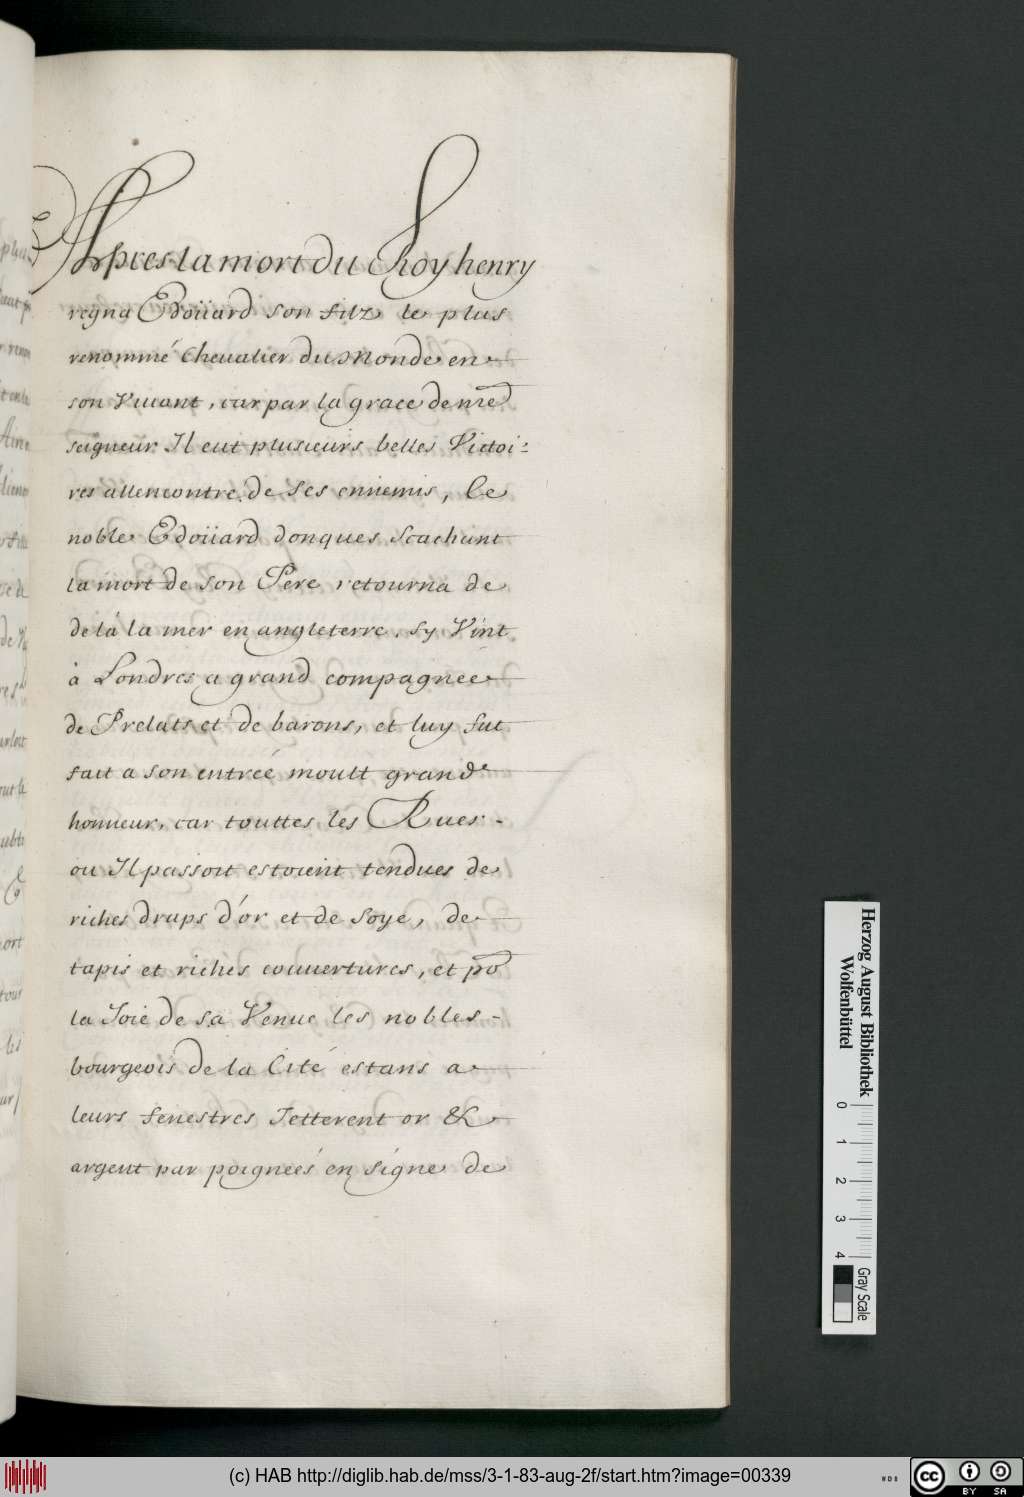 Apres la mort du Roy henry
regna Edoüard son filz le plus
renommé Chevalier du Monde en
son Vivant, car par la grace de nre
seigneur Il eut plusieurs belles Victoi-
res allencontre de ses ennemis, Ce
noble Edoüard donques scachant
la mort de son Pere retourna de
delá la mer en angleterre, sy Vint
à Londres a grand compagneé
de Prelats et de barons, et luy fut
fait a son entreé moult grand
honneur, car touttes les Rues -
ou Il passoit estoient tendues de
riches draps d'or et de soye, de
tapis et riches couvertures, et po
la Joie de sa Venue les nobles -
bourgeois de la Cité estans a
leurs fenestres Jetterent or &
argent par poigneés en signe de
Herzog August Bibliothek
Wolfenbüttel
0 1 2 3 4
Gray Scale
(c) HAB http://diglib.hab.de/mss/3-1-83-aug-2f/start.htm?image=00339
WDB
cc BY SA